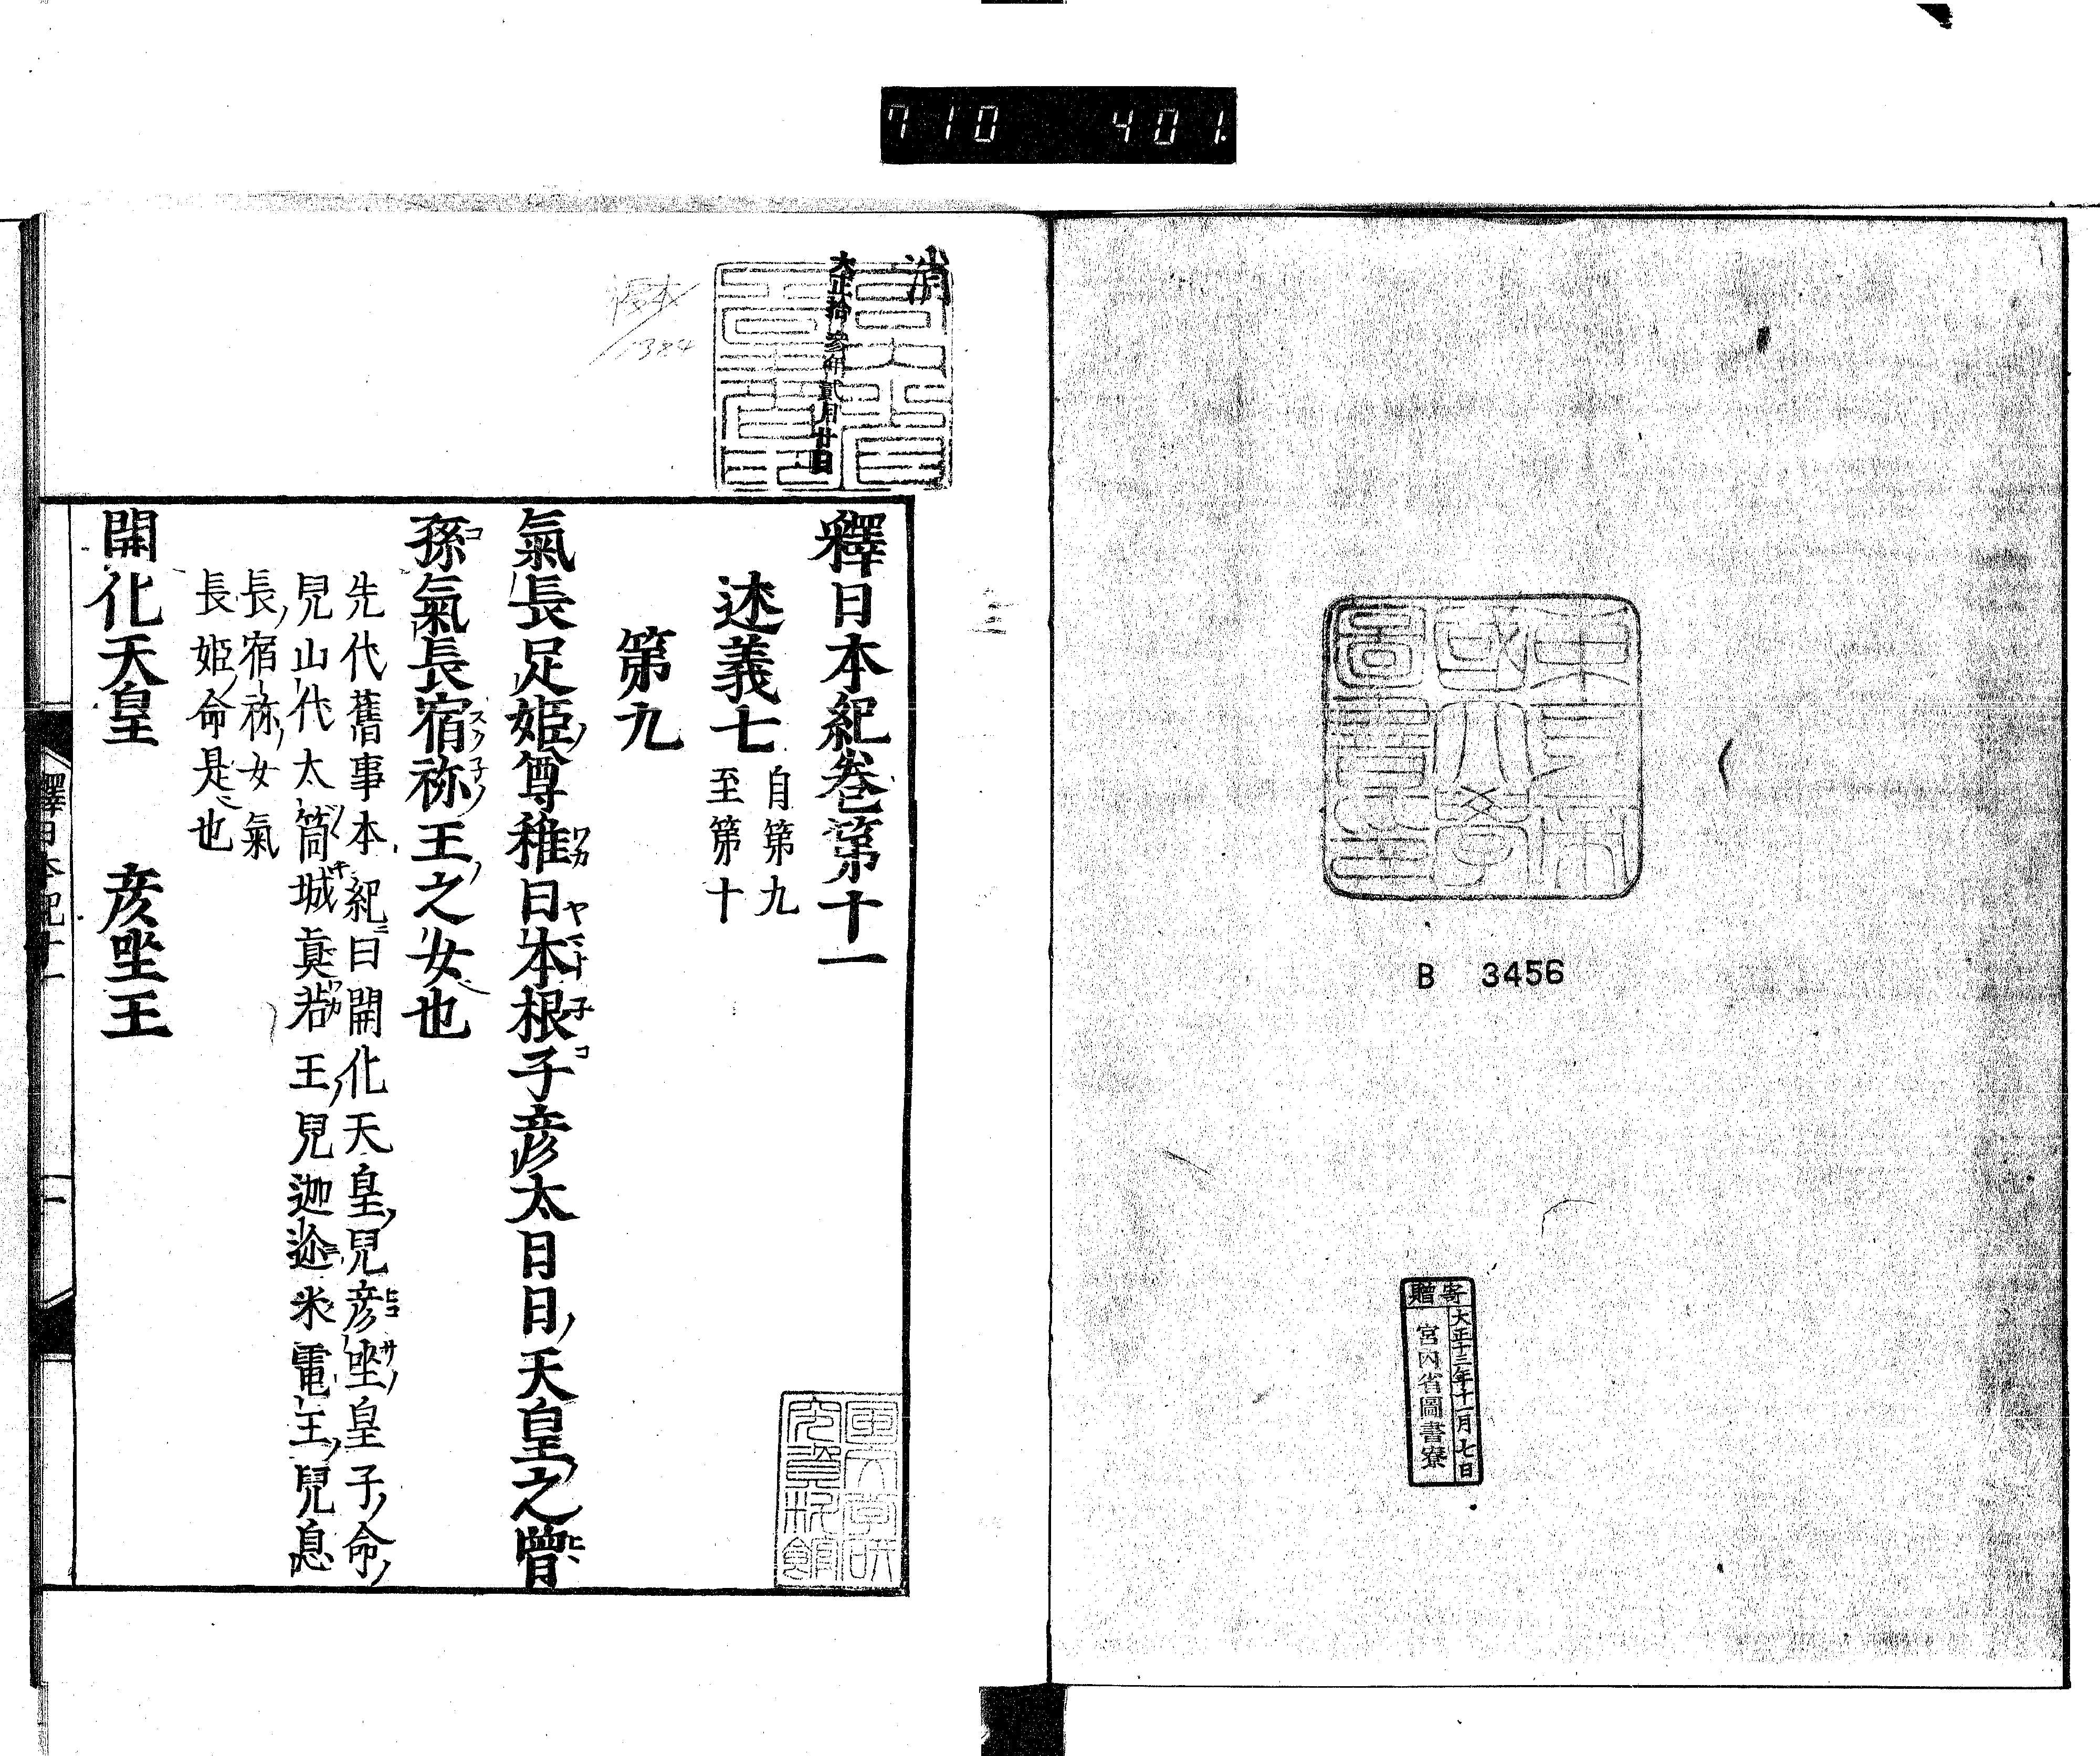 710 401
東京帝
國大學
圖書印
B 3456
寄贈
大正十三年十一月七日
宮内省圖書寮
消
大正拾参年貳月廿日
1384
釋日本紀卷第十一
述義七 自第九
至第十
第九
氣長足姫尊稚日本根子彦太日日天皇之曽
孫氣長宿祢王之女也
先代舊事本紀曰開化天皇兒彦坐皇子命
兒山代太筒城真若王兒迦迩米雷王兒息
長宿祢女氣
長姫命是也
開化天皇 彦坐王
釋日本紀十一
一